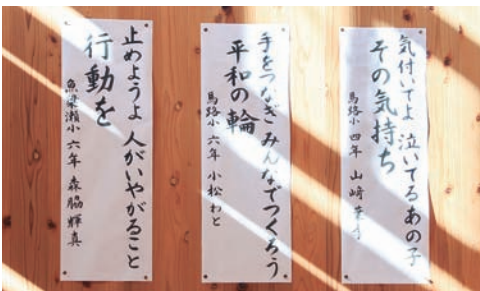 気付いてよ 泣いてるあの子
その気持ち
馬路小 四年 山﨑
手をつなぎ みんなでつくろう
平和の輪
馬路小 六年 小松わと
止めようよ 人がいやがること
行動を
魚梁瀬小 六年 森脇輝真